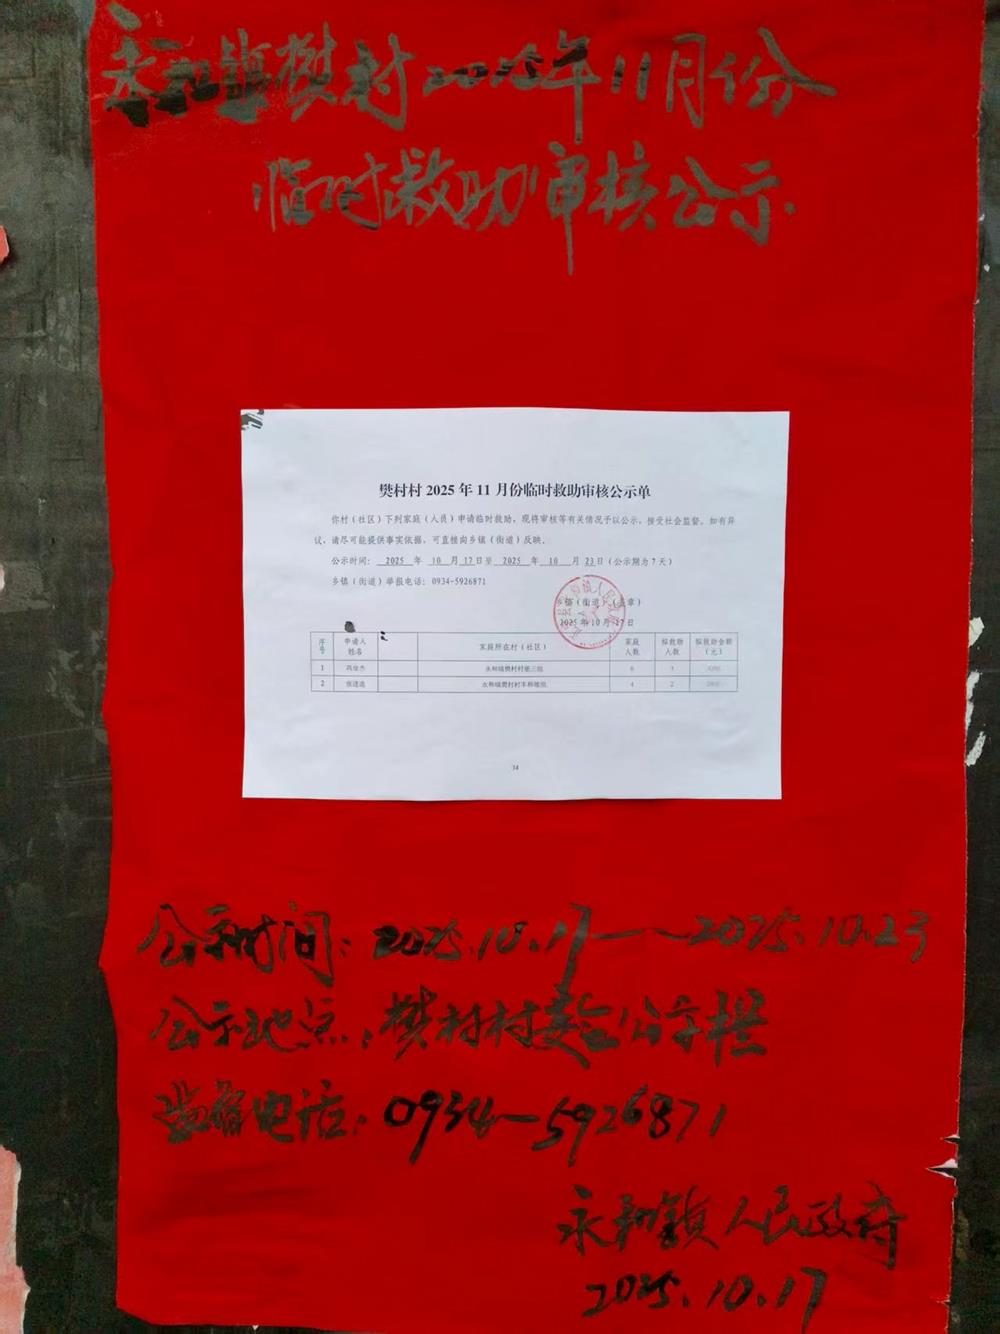 永和镇樊村2025年11月份
临时救助审核公示
樊村村 2025 年 11 月份临时救助审核公示单
你村（社区）下列家庭（人员）申请临时救助，现将审核等有关情况予以公示，接受社会监督。如有异
议，请尽可能提供事实依据，可直接向乡镇（街道）反映。
公示时间： 2025 年 10 月 17 日至 2025 年 10 月 23 日（公示期为 7 天）
乡镇（街道）举报电话：0934-5926871
乡镇（街道）（盖章）
2025 年 10 月 17 日
序号 申请人姓名 家庭所在村（社区） 家庭人数 拟救助人数 拟救助金额（元）
1 永和镇樊村村 三组 6 3
2 永和镇樊村村 组 4 2
14
公示时间：2025.10.17——2025.10.23
公示地点：樊村村委会公示栏
监督电话：0934-5926871
永和镇人民政府
2025.10.17